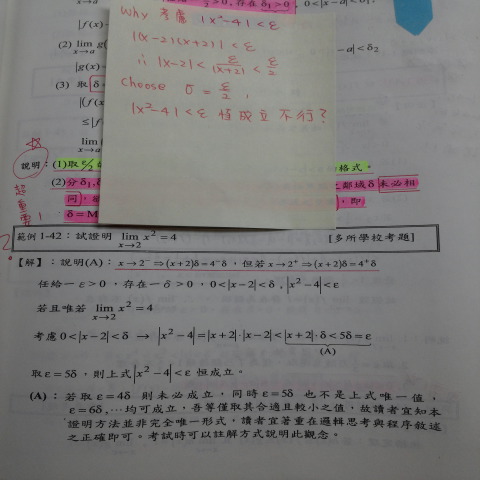 >0,存在δ₁>0, 0<|x-a|<δ₁,
|f(x)-
(2) lim g(
x→a
-a|<δ₂
|g(x)-
(3) 取δ=
|(f(x)
≤|f
lim
x→a
Why 考慮 |x²-4|<ε
|(x-2)(x+2)|<ε
∴ |x-2|< ε/(x+2) < ε/2
choose δ = ε/2,
|x²-4|<ε 恆成立不行?
說明:(1)取ε/2的
格式。
(2)分δ₁,δ
之鄰域δ未必相
同,
,即
δ=M
超重要!
?
範例 1-42:試證明 lim x²=4 [多所學校考題]
x→2
【解】:說明(A):x→2⁻⇒(x+2)δ=4⁻δ,但若x→2⁺⇒(x+2)δ=4⁺δ
任給一ε>0,存在一δ>0,0<|x-2|<δ,|x²-4|<ε
若且唯若 lim x²=4
x→2
考慮0<|x-2|<δ → |x²-4|=|x+2|·|x-2|<|x+2|·δ<5δ=ε
(A)
取ε=5δ,則上式|x²-4|<ε 恆成立。
(A):若取ε=4δ 則未必成立,同時ε=5δ 也不是上式唯一值,
ε=6δ,…均可成立,吾等僅取其合適且較小之值,故讀者宜知本
證明方法並非完全唯一形式,讀者宜著重在邏輯思考與程序敘述
之正確即可。考試時可以註解方式說明此觀念。